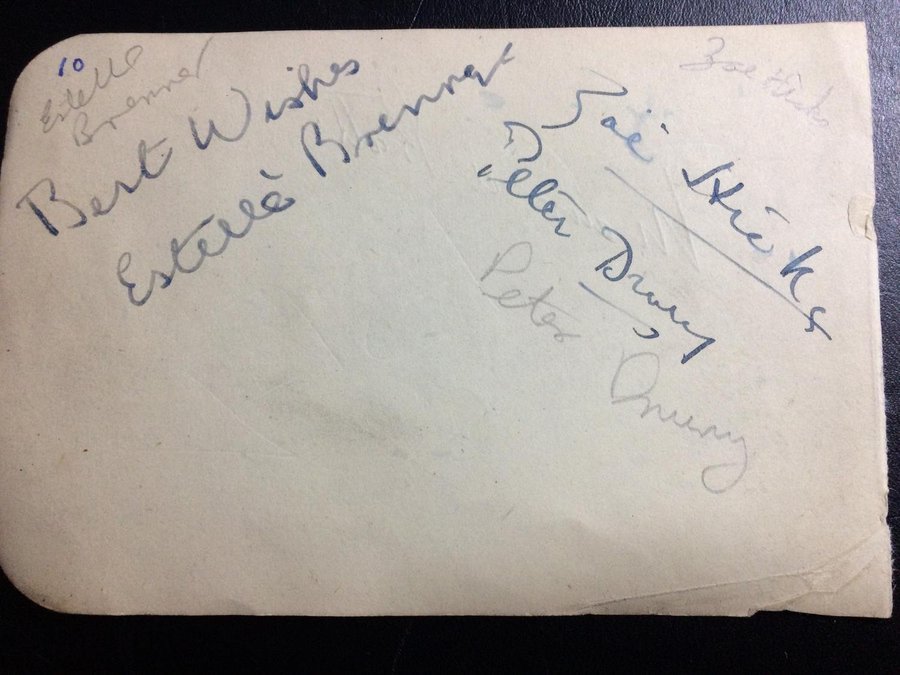 10
Estella
Brenner
Best Wishes
Estella Brenner
Zoe Hicks
Zoë Hicks
Peter Drury
Peter Drury